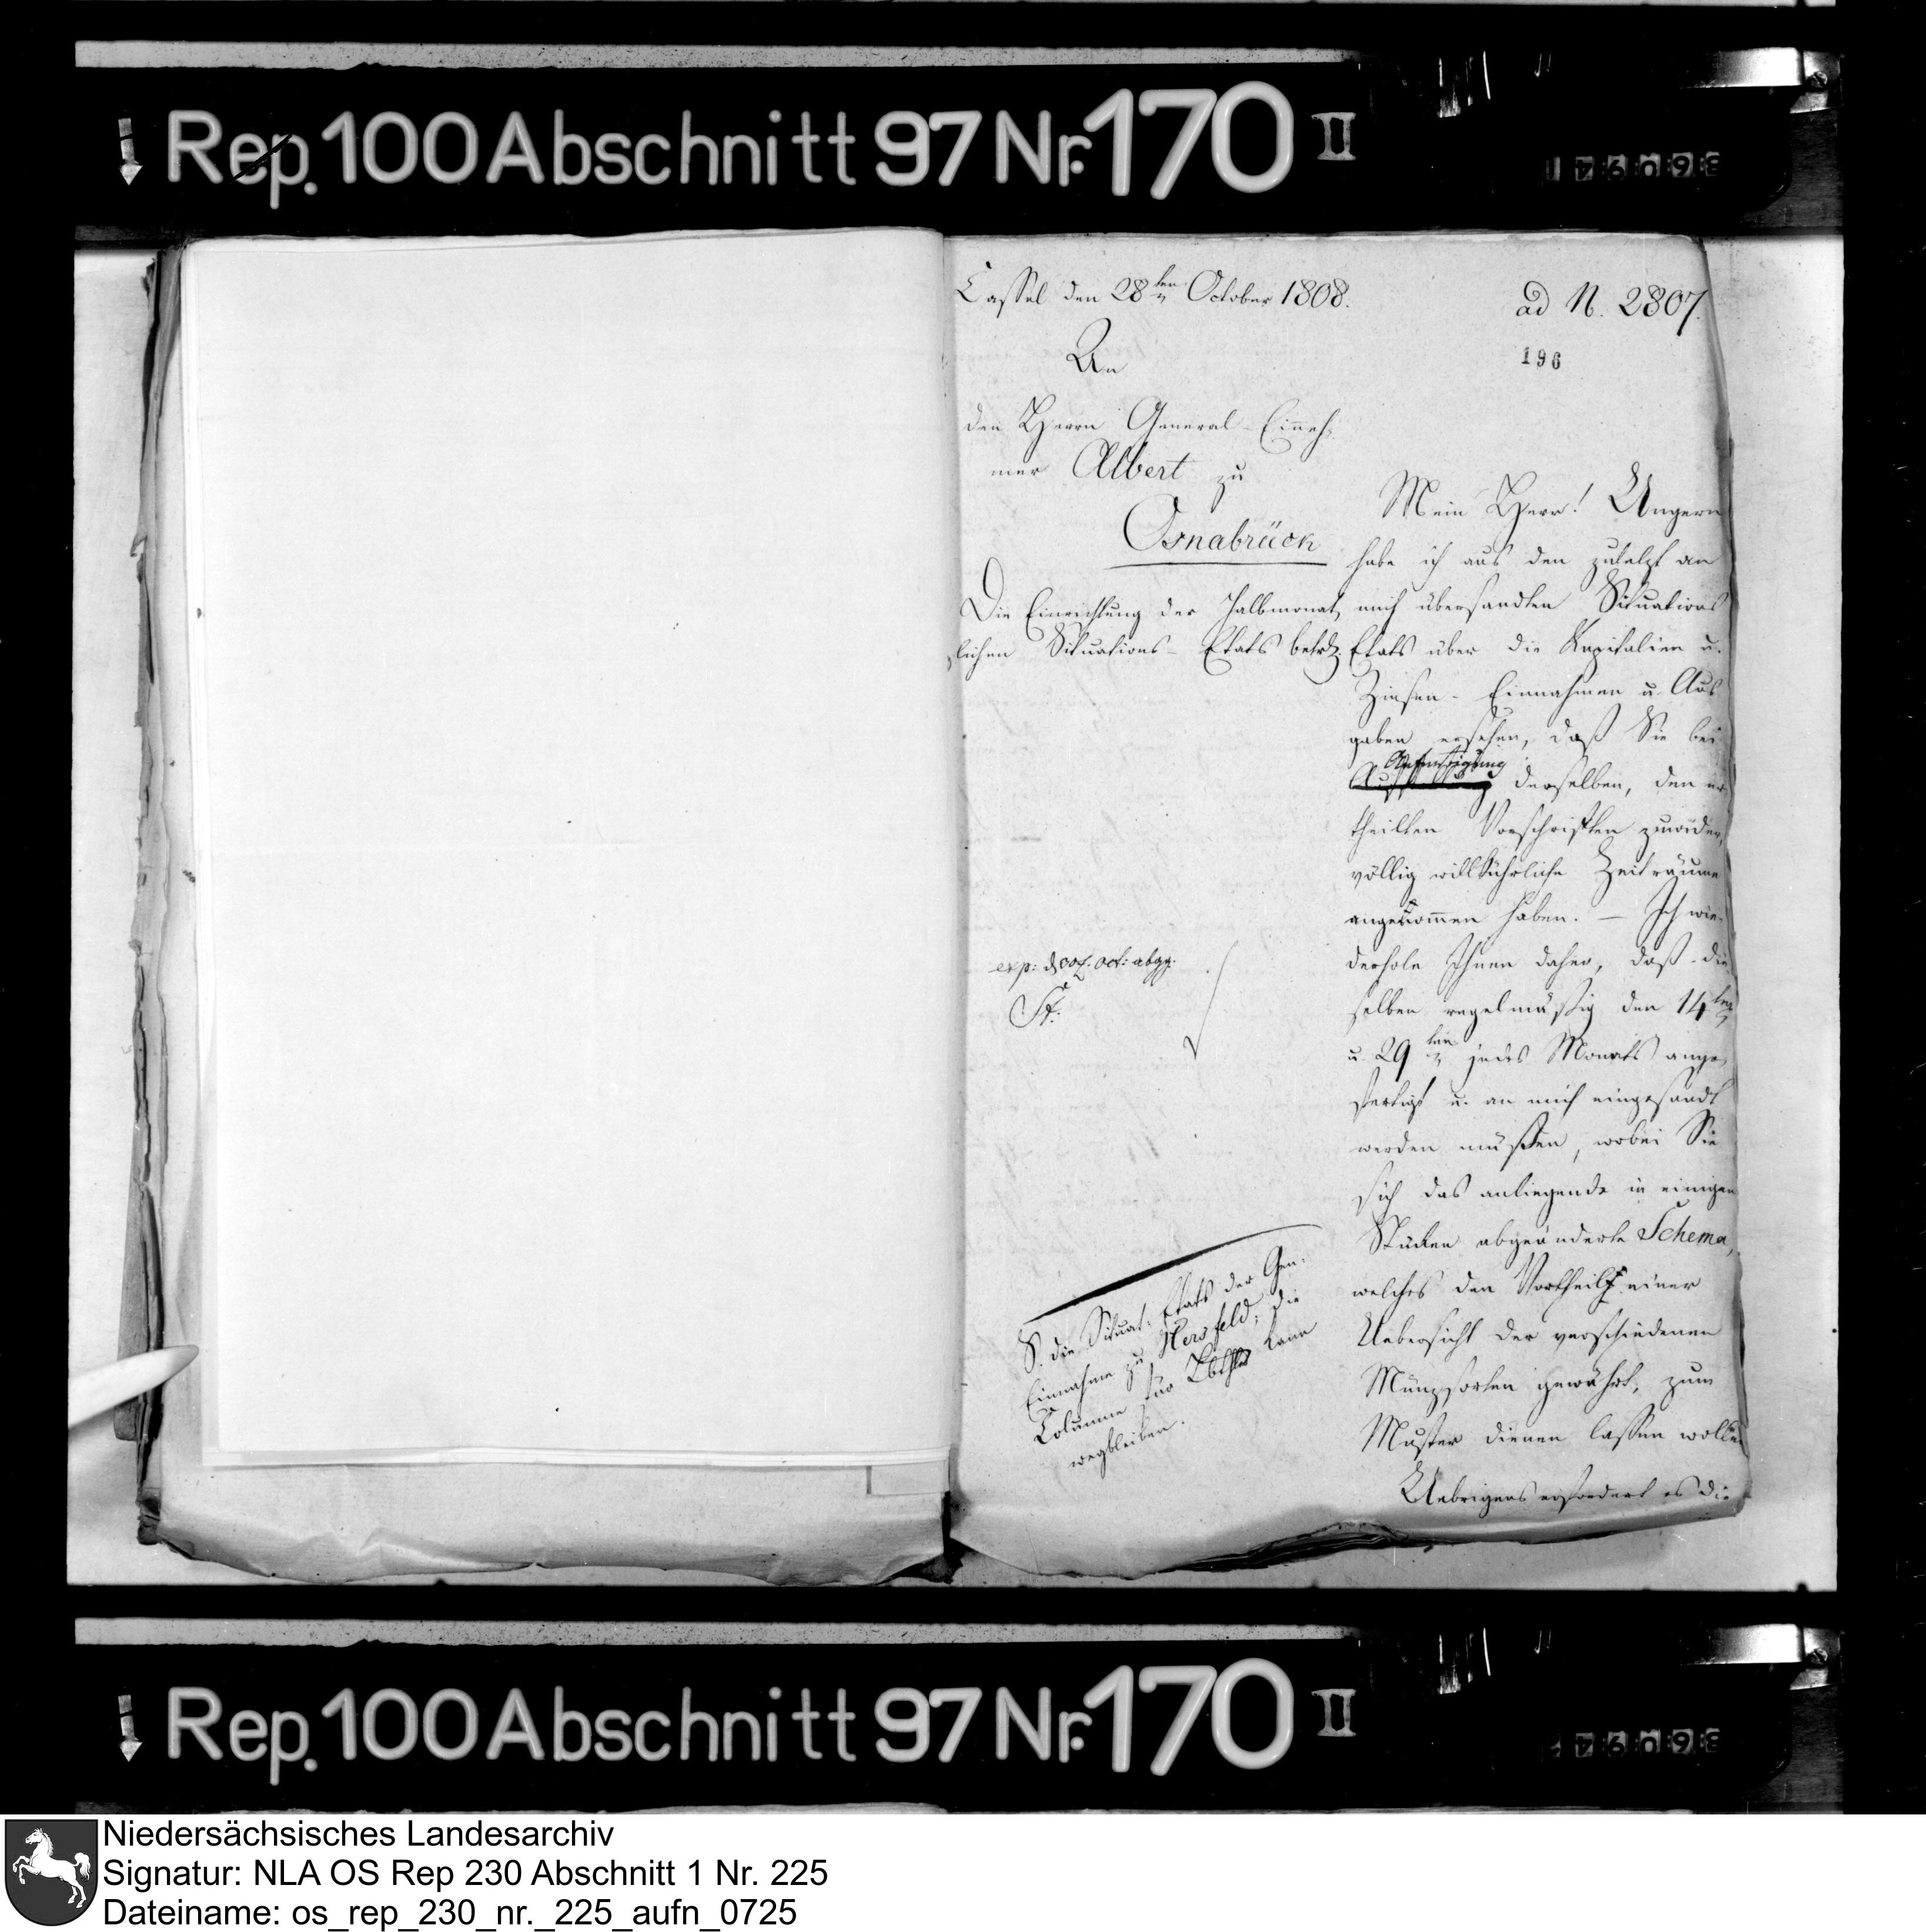 Rep. 100 Abschnitt 97 Nr. 170 II
Cassel den 28ten October 1808.
ad N. 2807.
196
An
den Herrn General-Einneh-
mer Albert zu
Osnabrück
Die Einrichtung der halbmonat-
lichen Situations-Etats betrf.
Mein Herr! Ungern
habe ich aus den zuletzt an
mich übersandten Situations
Etats über die Kapitalien u.
Zinsen-Einnahmen u. Aus
gaben ersehen, daß Sie bei
Anfertigung
derselben, den er
theilten Vorschriften zuwider,
völlig willkührliche Zeiträume
angenommen haben. — Ich wie-
derhole Ihnen daher, daß die
selben regelmäßig den 14ten
u. 29ten jedes Monats ange
fertigt u. an mich eingesandt
werden müßen, wobei Sie
sich das anliegende in einigen
Stücken abgeänderte Schema,
welches den Vortheil einer
Uebersicht der verschiedenen
Münzsorten gewährt, zum
Muster dienen lassen wollen
Uebrigens erfordert es die
exp: Oct: abgg.
St.
S. die Situat: Etats der Gen:
Einnahme zu Hersfeld; die
Columne für kann
wegbleiben.
Rep. 100 Abschnitt 97 Nr. 170 II
Niedersächsisches Landesarchiv
Signatur: NLA OS Rep 230 Abschnitt 1 Nr. 225
Dateiname: os_rep_230_nr._225_aufn_0725